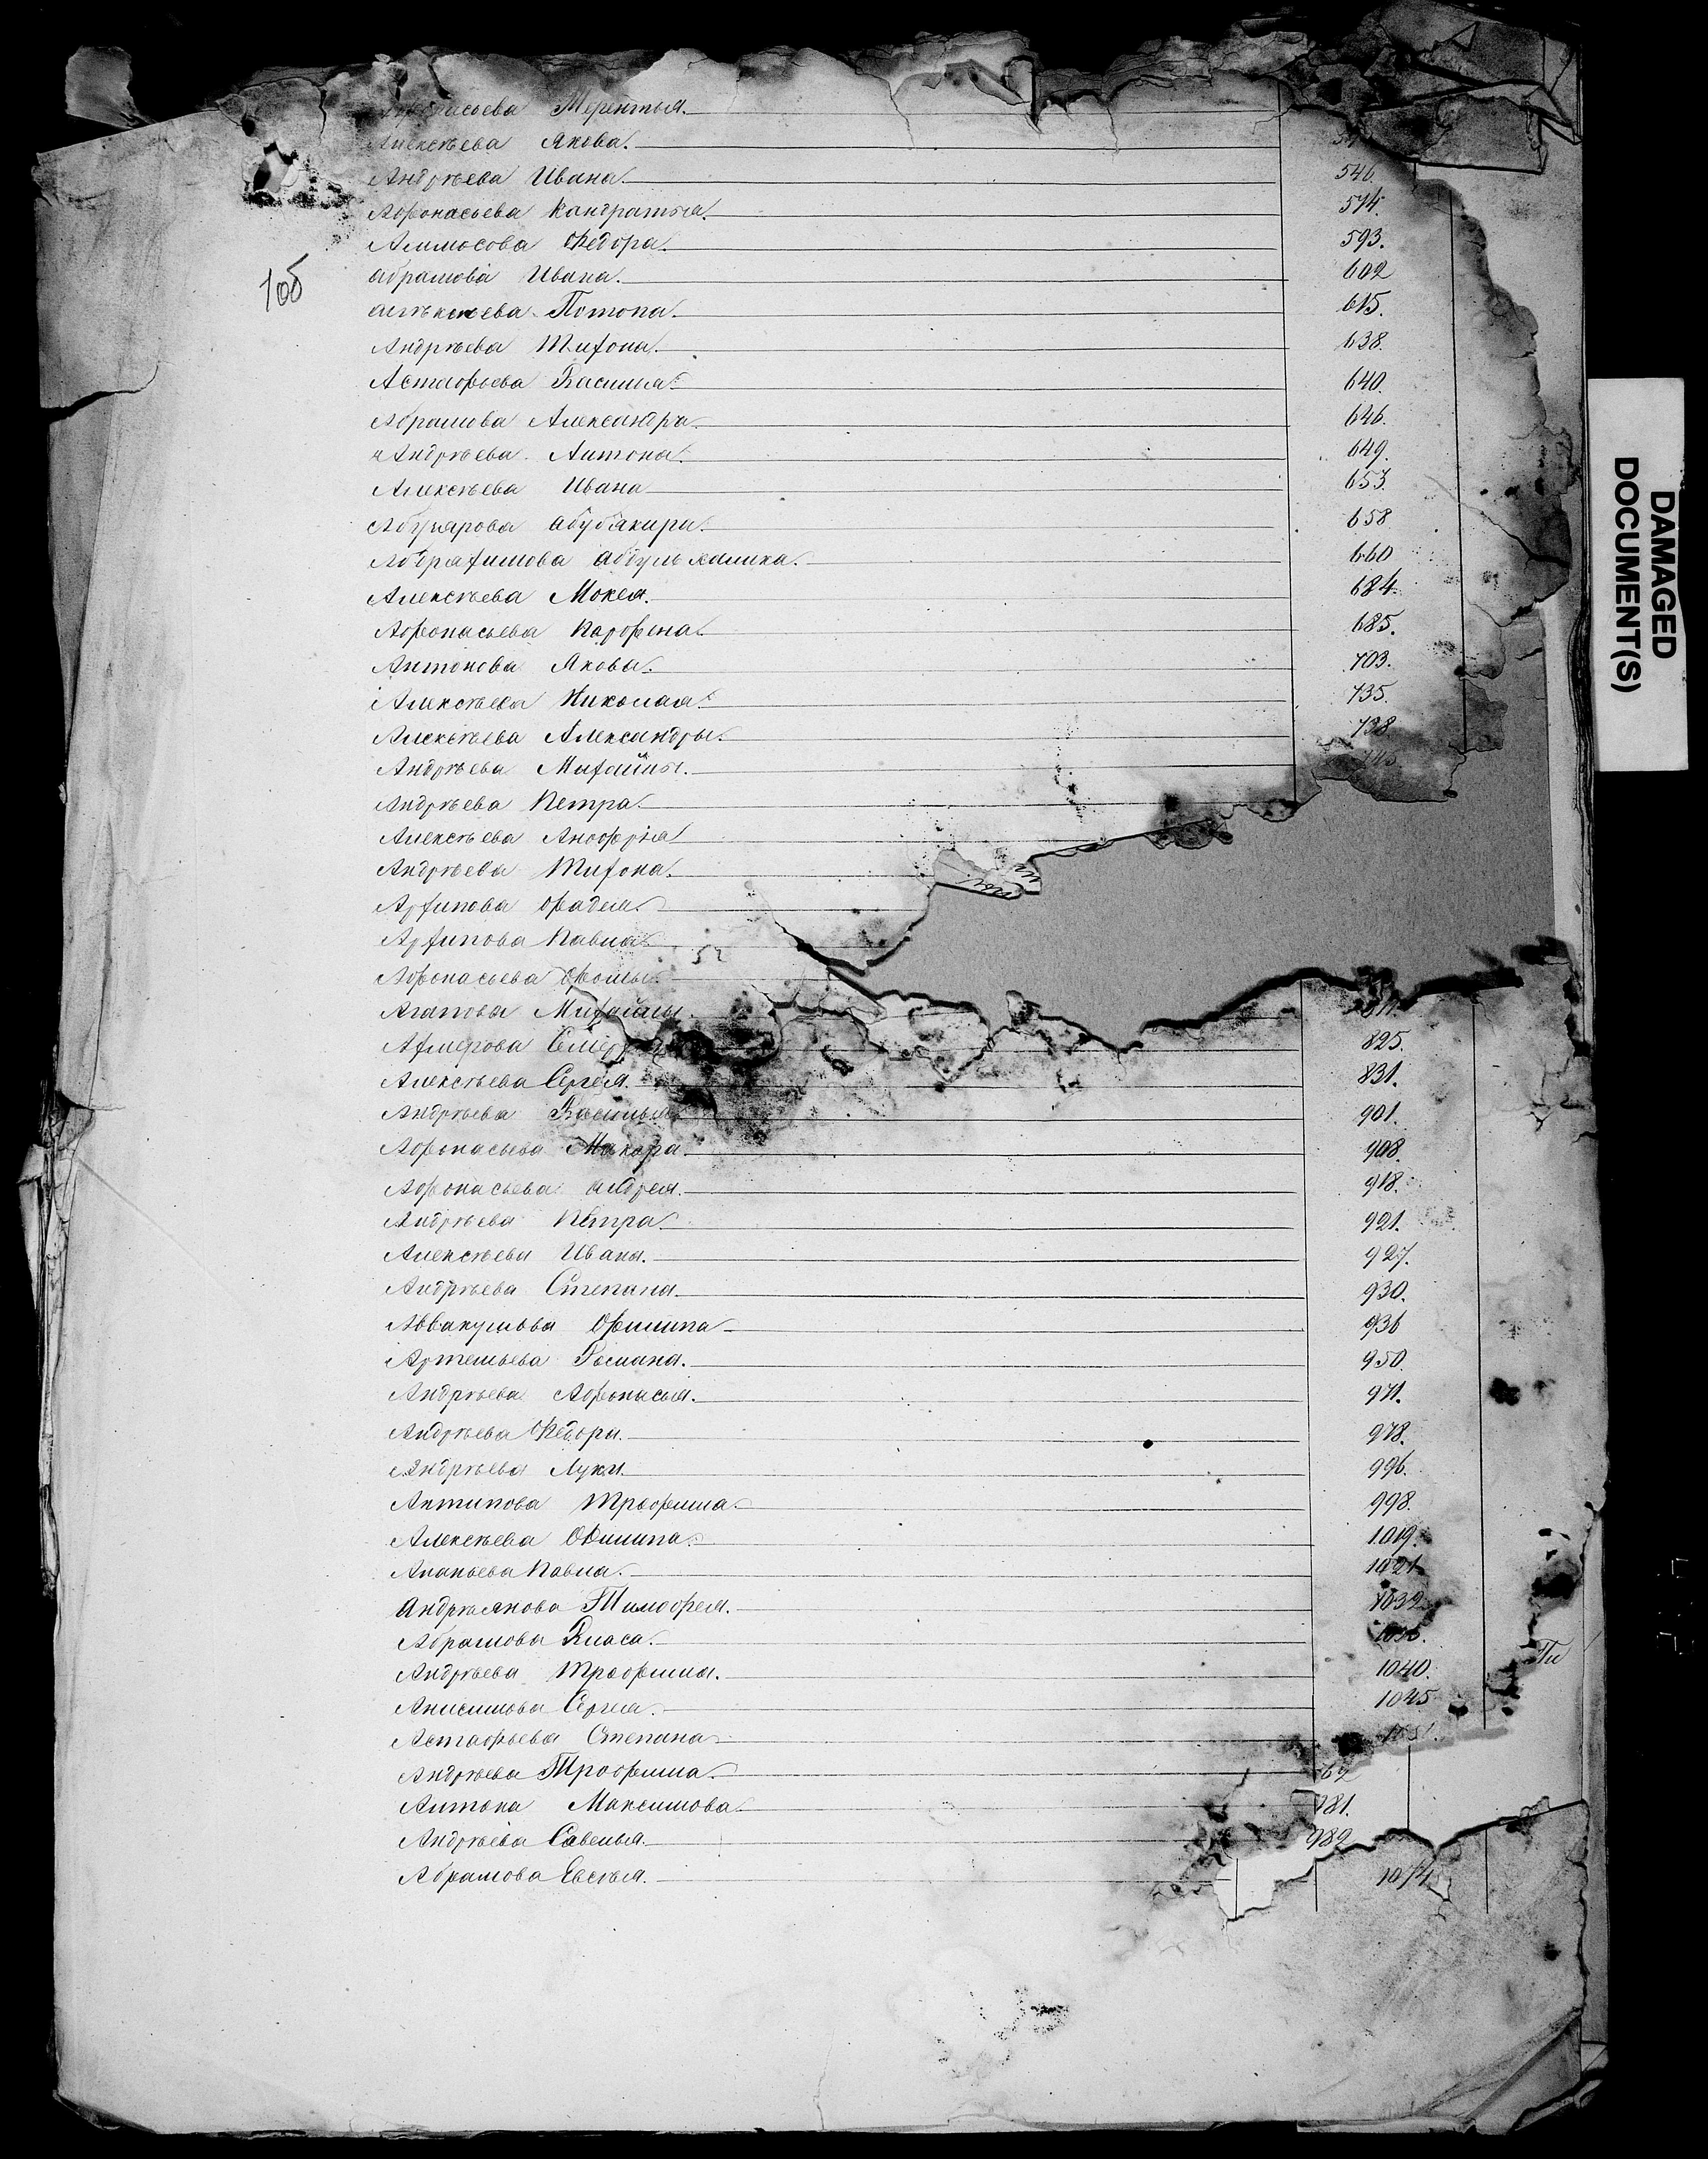 Терентья.
Алексѣева Якова.
Андрѣева Ивана. 546
Афонасьева Кандратья. 574.
Ѳедора. 593.
абрамова Ивана. 602
алѣксѣева Потопа. 615.
Андрѣева Тихона. 638.
Астафьева Василья. 640.
Абрамова Александра. 646.
Андрѣева Антона. 649.
Алексѣева Ивана 653.
абубакира. 658
660
Алексѣева Мокея. 684.
Афонасьева Парфена. 685.
Антонова Якова. 703.
Алексѣева Николая. 735.
Алексѣева Александры. 738
Андрѣева Михайлы.
Андрѣева Петра.
Алексѣева Анофрія
Андрѣева Тихона.
Архипова Фадея.
Архипова Павла.
Афонасьева Фомы.
Агапова Михайлы.
825.
Алексѣева Сергея. 831.
Андрѣева Василья 901.
Афонасьева Макара. 908.
Афонасьева андрея. 918.
Андрѣева Петра. 921.
Алексѣева Ивана. 927.
Андрѣева Степана. 930.
Аввакумова Филипа 936
Артемьева Романа. 950.
Андрѣева Афонасья. 971.
Андрѣева Ѳедора. 978.
Андрѣева Луки. 996.
Антипова Трофима. 998.
Алексѣева Филипа. 1019.
Ананьева Павла. 1021
Андрѣянова Тимофея. 1032
Абрамова Власа.
Андрѣева Трофима. 1040.
Анисимова Сергея. 1045
Астафьева Степана
Андрѣева Трофима. 62
Антона Максимова. 981.
Андрѣева Савелья. 989
Абрамова Евсѣя. 1074
106
DAMAGED
DOCUMENT(S)